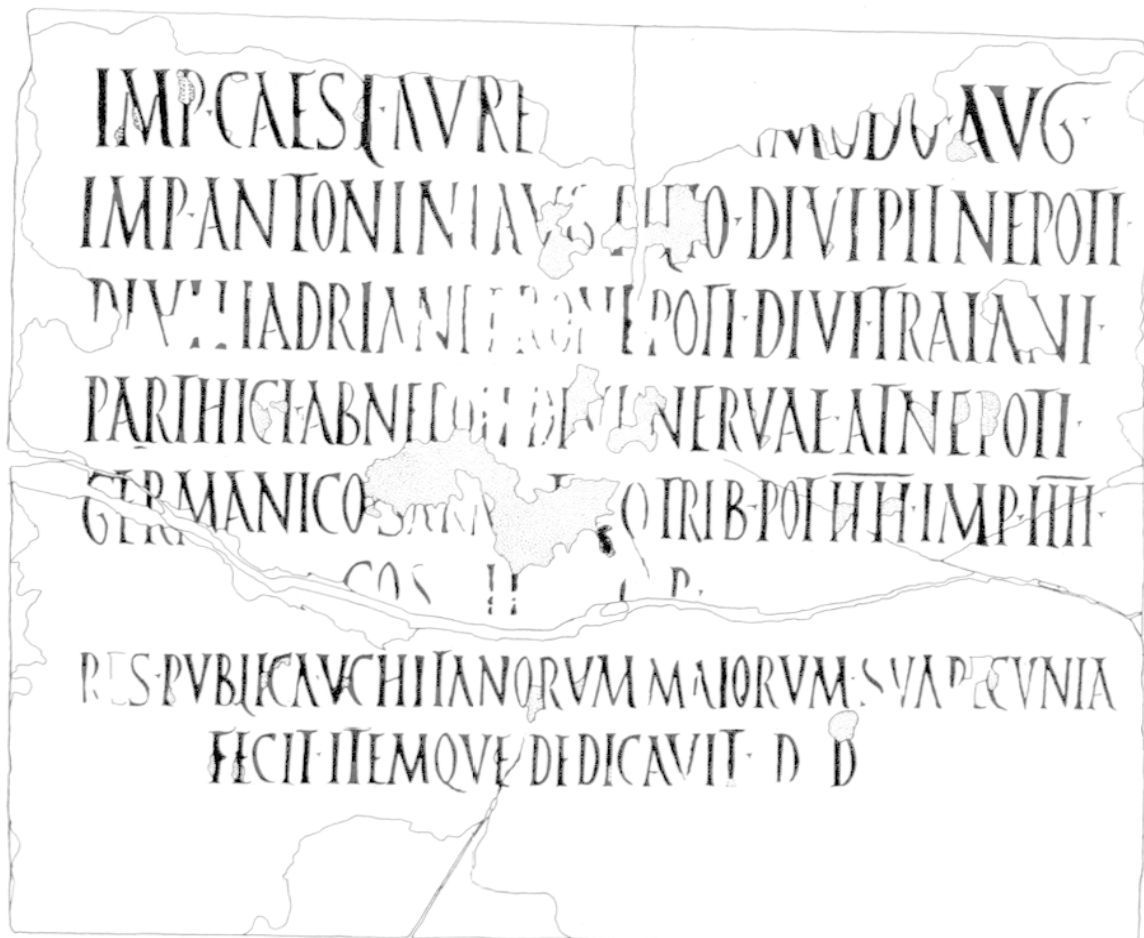 IMP·CAES·L·AVRE MODO·AVG·
IMP·ANTONINI AVG FILIO·DIVI PII NEPOTI·
DIVI HADRIANI PRONEPOTI·DIVI·TRAIANI·
PARTHICI·ABNEPOTI DIVI NERVAE·ATNEPOTI·
GERMANICO TRIB·POT IIII·IMP·IIII·
COS II P
RES·PVBLICA·VCHITANORVM MAIORVM·SVA PECVNIA
FECIT·ITEMQVE DEDICAVIT· D D